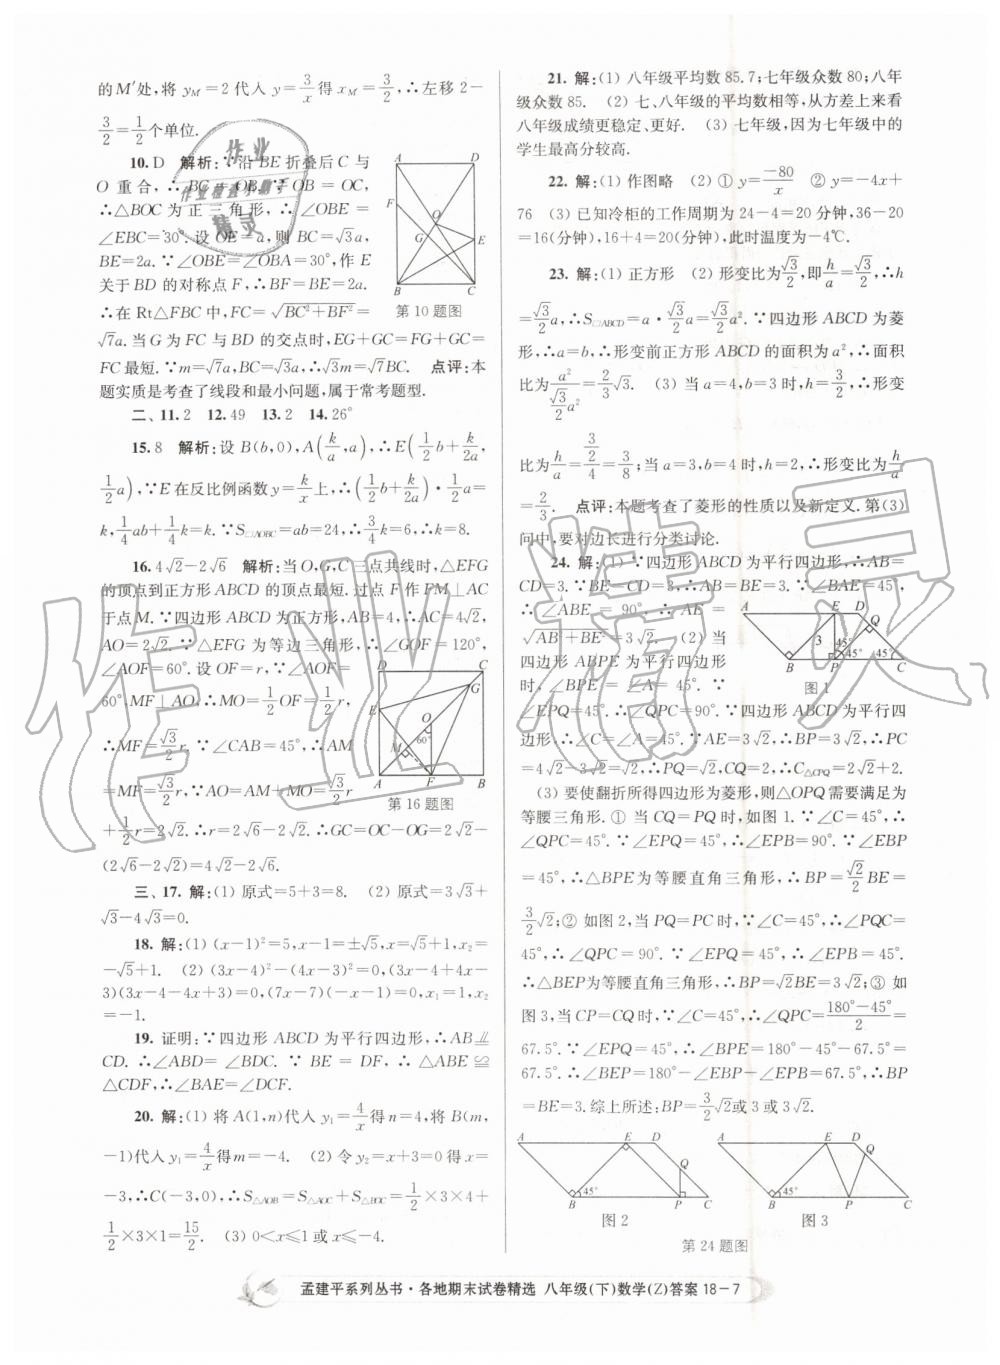 的M′处,将 yM=2代入 y=3/x 得 xM=3/2,∴左移 2-
3/2=1/2个单位.
10. D 解析:∵沿 BE 折叠后 C 与
O 重合,∴BC=OB.∵OB=OC,
∴△BOC 为正三角形,∴∠OBE=
∠EBC=30°.设 OE=a,则 BC=√3a,
BE=2a.∵∠OBE=∠OBA=30°,作 E
关于 BD 的对称点 F,∴BF=BE=2a.
∴在 Rt△FBC 中,FC=√(BC²+BF²)=
√7a.当 G 为 FC 与 BD 的交点时,EG+GC=FG+GC=
FC 最短.∵m=√7a,BC=√3a,∴√3m=√7BC. 点评:本
题实质是考查了线段和最小问题,属于常考题型.
A D O F G E B C
第 10 题图
二、11. 2 12. 49 13. 2 14. 26°
15. 8 解析:设 B(b,0),A(k/a,a),∴E(1/2b+k/2a,
1/2a),∵E 在反比例函数 y=k/x上,∴(1/2b+k/2a)·1/2a=
k,1/4ab+1/4k=k.∵S□AOBC=ab=24,∴3/4k=6,∴k=8.
16. 4√2-2√6 解析:当 O,G,C 三点共线时,△EFG
的顶点到正方形 ABCD 的顶点最短.过点 F 作 FM⊥AC
于点 M.∵四边形 ABCD 为正方形,AB=4,∴AC=4√2,
AO=2√2.∵△EFG 为等边三角形,∴∠GOF=120°,
∠AOF=60°.设 OF=r,∵∠AOF=
60°,MF⊥AO,∴MO=1/2OF=1/2r,
∴MF=√3/2r.∵∠CAB=45°,∴AM
=MF=√3/2r,∵AO=AM+MO=√3/2r
+1/2r=2√2.∴r=2√6-2√2.∴GC=OC-OG=2√2-
(2√6-2√2)=4√2-2√6.
D C G E O 60° M A F B
第 16 题图
三、17. 解:(1) 原式=5+3=8. (2) 原式=3√3+
√3-4√3=0.
18. 解:(1) (x-1)²=5,x-1=±√5,x=√5+1,x₂=
-√5+1. (2) (3x-4)²-(4x-3)²=0,(3x-4+4x-
3)(3x-4-4x+3)=0,(7x-7)(-x-1)=0,x₁=1,x₂
=-1.
19. 证明:∵四边形 ABCD 为平行四边形,∴AB⫽
CD.∴∠ABD=∠BDC.∵BE=DF,∴△ABE≌
△CDF,∴∠BAE=∠DCF.
20. 解:(1) 将 A(1,n)代入 y₁=4/x得 n=4,将 B(m,
-1)代入 y₁=4/x得 m=-4. (2) 令 y₂=x+3=0 得 x=
-3,∴C(-3,0),∴S△AOB=S△AOC+S△BOC=1/2×3×4+
1/2×3×1=15/2. (3) 0<x≤1 或 x≤-4.
21. 解:(1) 八年级平均数 85.7;七年级众数 80;八年
级众数 85. (2) 七、八年级的平均数相等,从方差上来看
八年级成绩更稳定、更好. (3) 七年级,因为七年级中的
学生最高分较高.
22. 解:(1) 作图略 (2) ① y=-80/x ② y=-4x+
76 (3) 已知冷柜的工作周期为 24-4=20 分钟,36-20
=16(分钟),16+4=20(分钟),此时温度为-4℃.
23. 解:(1) 正方形 (2) 形变比为√3/2,即h/a=√3/2,∴h
=√3/2a,∴S□ABCD=a·√3/2a=√3/2a².∵四边形 ABCD 为菱
形,∴a=b,∴形变前正方形 ABCD 的面积为 a²,∴面积
比为a²/(√3/2a²)=2/3√3. (3) 当 a=4,b=3 时,h=3/2,∴形变
比为h/a=(3/2)/4=3/8;当 a=3,b=4 时,h=2,∴形变比为h/a
=2/3. 点评:本题考查了菱形的性质以及新定义.第(3)
问中,要对边长进行分类讨论.
24. 解:(1) ∵四边形 ABCD 为平行四边形,∴AB=
CD=3.∵BE=CD=5,∴AB=BE=3.∵∠BAE=45°,
∴∠ABE=90°,∴AE=
√(AB²+BE²)=3√2. (2) 当
四边形 ABPE 为平行四边形
时,∠BPE=∠A=45°.∵
∠EPQ=45°.∴∠QPC=90°.∵四边形 ABCD 为平行四
边形,∴∠C=∠A=45°.∵AE=3√2,∴BP=3√2,∴PC
=4√2-3√2=√2,∴PQ=√2,CQ=2,∴C△CPQ=2√2+2.
A E D Q 3 45° 45° 45° B P C
图 1
(3) 要使翻折所得四边形为菱形,则△OPQ 需要满足为
等腰三角形.① 当 CQ=PQ 时,如图 1.∵∠C=45°,∴
∠QPC=45°.∵∠EPQ=45°,∴∠EPB=90°.∵∠EBP
=45°,∴△BPE为等腰直角三角形,∴BP=√2/2BE=
3/2√2;② 如图 2,当 PQ=PC 时,∵∠C=45°,∴∠PQC=
45°,∴∠QPC=90°.∵∠EPQ=45°,∴∠EPB=45°.
∴△BEP为等腰直角三角形,∴BP=√2BE=3√2;③ 如
图 3,当 CP=CQ 时,∵∠C=45°,∴∠QPC=(180°-45°)/2=
67.5°.∵∠EPQ=45°,∴∠BPE=180°-45°-67.5°=
67.5°.∴∠BEP=180°-∠EBP-∠EPB=67.5°,∴BP
=BE=3.综上所述:BP=3/2√2或 3 或 3√2.
A E D Q 45° B P C
图 2
A E D Q 45° B P C
图 3
第 24 题图
孟建平系列丛书·各地期末试卷精选 八年级(下)数学(Z)答案 18-7
作业
精灵
作业精灵